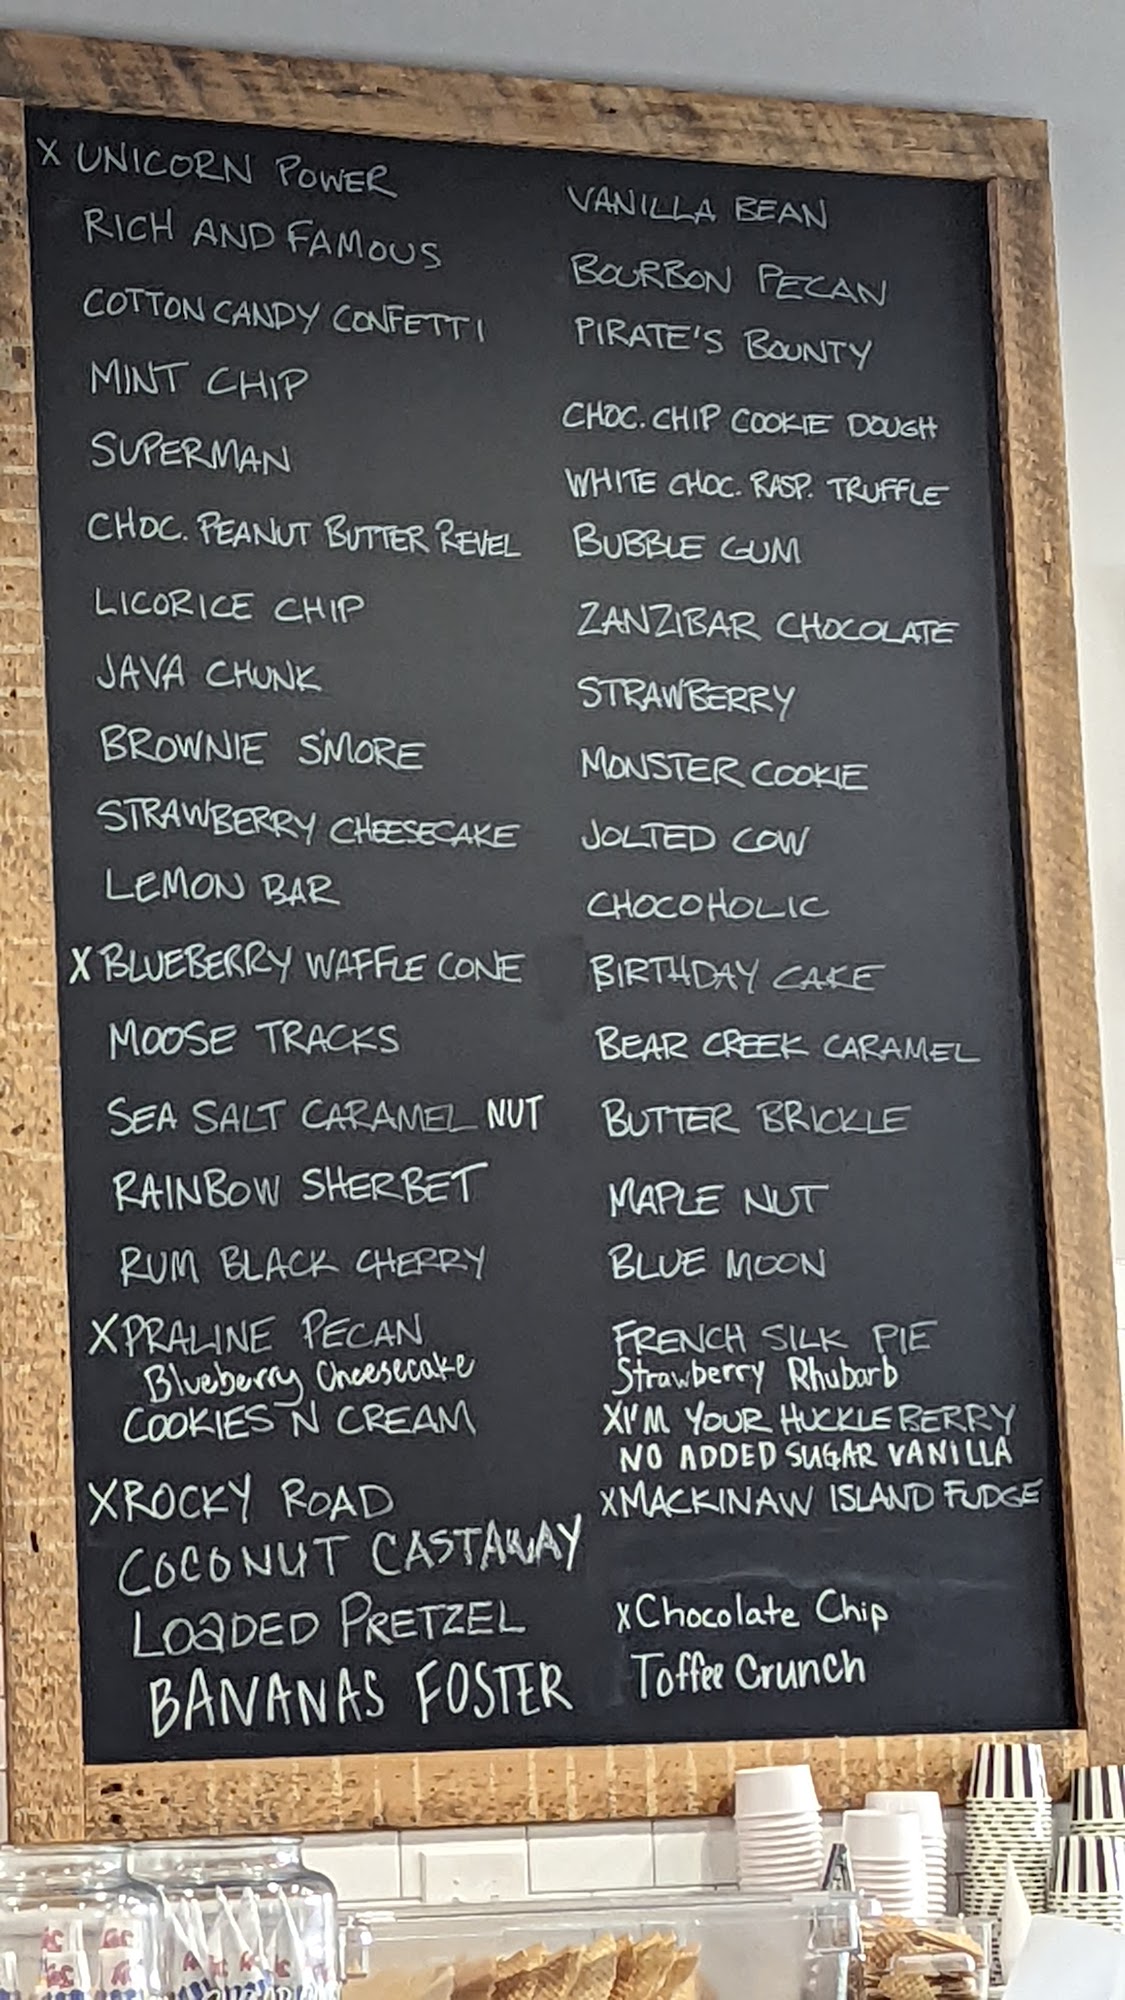 X UNICORN POWER
RICH AND FAMOUS
COTTON CANDY CONFETTI
MINT CHIP
SUPERMAN
CHOC. PEANUT BUTTER REVEL
LICORICE CHIP
JAVA CHUNK
BROWNIE S'MORE
STRAWBERRY CHEESECAKE
LEMON BAR
X BLUEBERRY WAFFLE CONE
MOOSE TRACKS
SEA SALT CARAMEL NUT
RAINBOW SHERBET
RUM BLACK CHERRY
X PRALINE PECAN
Blueberry Cheesecake
COOKIES N CREAM
X ROCKY ROAD
COCONUT CASTAWAY
LOADED PRETZEL
BANANAS FOSTER
VANILLA BEAN
BOURBON PECAN
PIRATE'S BOUNTY
CHOC. CHIP COOKIE DOUGH
WHITE CHOC. RASP. TRUFFLE
BUBBLE GUM
ZANZIBAR CHOCOLATE
STRAWBERRY
MONSTER COOKIE
JOLTED COW
CHOCOHOLIC
BIRTHDAY CAKE
BEAR CREEK CARAMEL
BUTTER BRICKLE
MAPLE NUT
BLUE MOON
FRENCH SILK PIE
Strawberry Rhubarb
X I'M YOUR HUCKLEBERRY
NO ADDED SUGAR VANILLA
X MACKINAW ISLAND FUDGE
X Chocolate Chip
Toffee Crunch